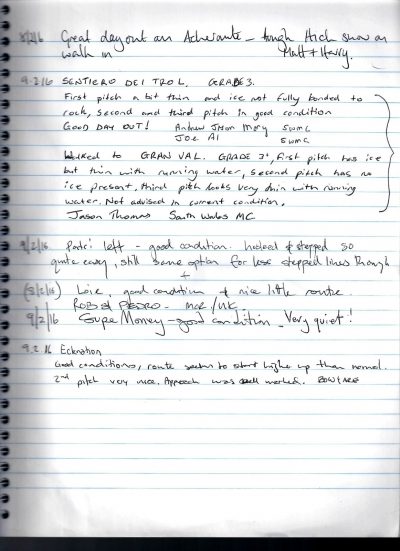 8/2/16 Great day out on Acherante – tough thick snow on
walk in Matt + Harry.
9.2/16 SENTIERO DEI TROL. GRADE 3.
First pitch a bit thin and ice not fully bonded to
rock, second and third pitch in good condition
GOOD DAY OUT! Andrew Jason Mary SWMC
Joe Al SWMC
Walked to GRAN VAL. GRADE 3+, first pitch has ice
but thin with running water, second pitch has no
ice present, third pitch looks very thin with running
water. Not advised in current condition.
Jason Thomas South Wales MC
9/2/16 Patri left - good condition. Hooked & stepped so
quite easy, still some option for less stepped lines though
+
(8/2/16) Loie, good condition & nice little route.
ROB & PEDRO - MCR/UK
9/2/16 Super Money – good condition – Very quiet!
9.2.16 Eclonation
Good conditions, route seems to start higher up than normal.
2nd pitch very nice. Approach was well marked.